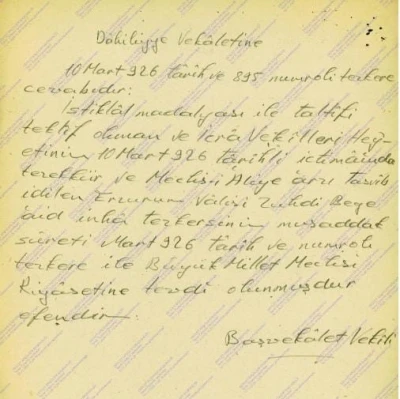 Dâhiliyye Vekâletine
10 Mart 926 târih ve 895 numrolı tezkere
cevabıdır:
İstiklâl madalyası ile taltifi
teklif olunan ve İcrâ Vekilleri Hey-
etinin 10 Mart 926 târihli ictimâında
tezekkür ve Meclisi Âliye arzı tasvîb
idilen Erzurum Vâlisi Zühdi Beye
âid inhâ tezkersinin musaddak
sûreti Mart 926 târih ve numrolı
tezkere ile Büyük Millet Meclisi
Riyâsetine tevdi olunmuşdur
efendim.
Başvekâlet Vekili